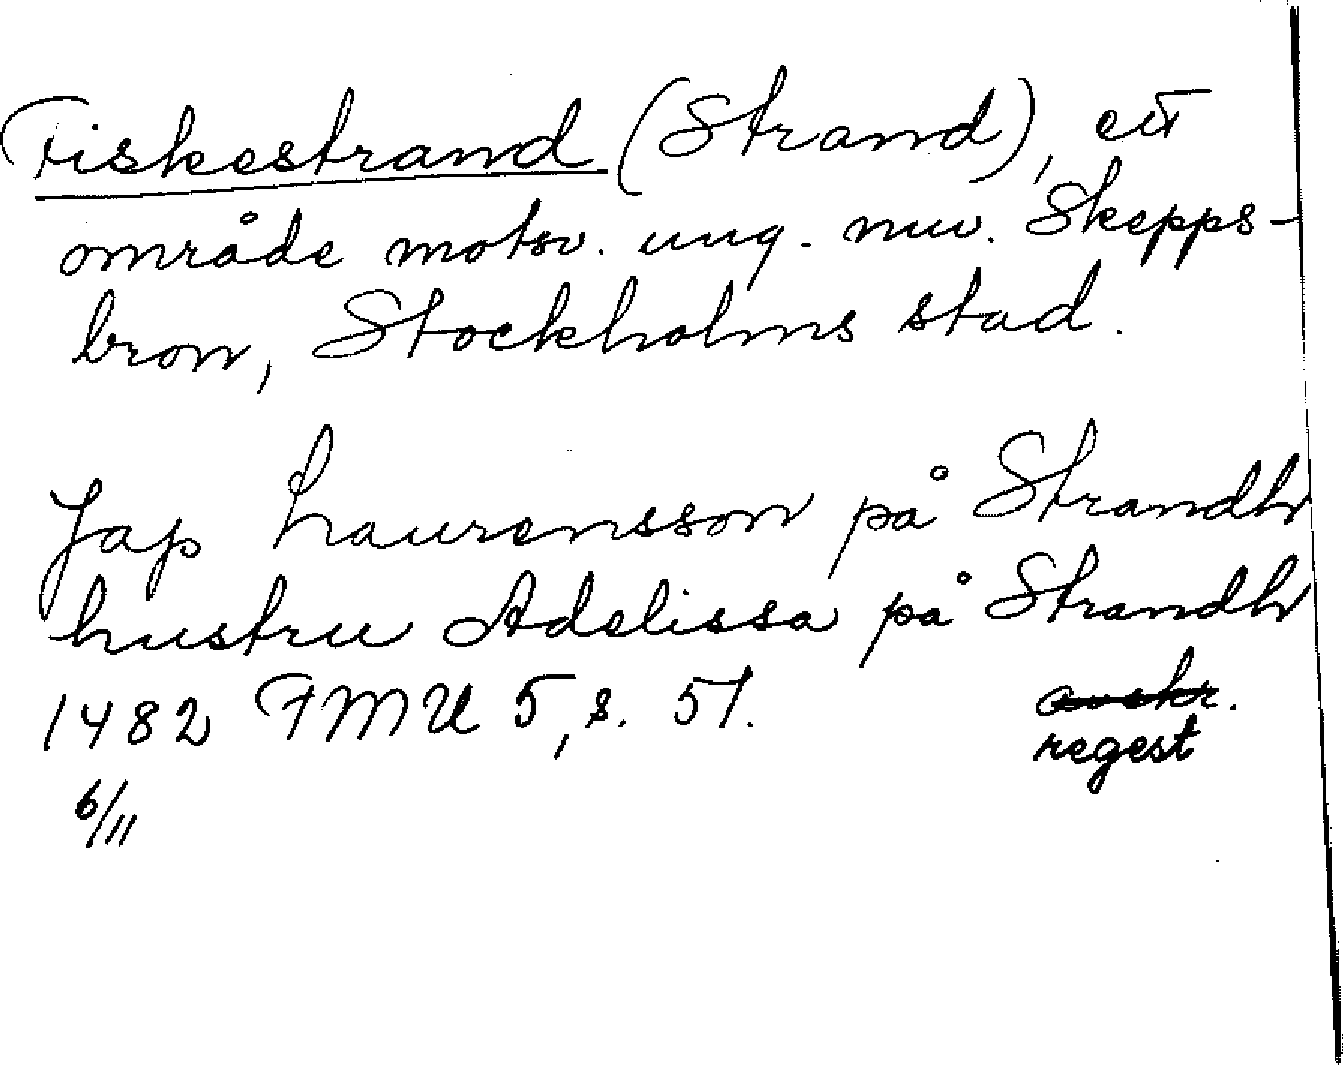 Fiskestrand (Strand), ett
område motsv. ung. nuv. Skepps-
bron, Stockholms stad.
Jap Laurensson på Strandh
hustru Adelissa på Strandh
1482 FMU 5, s. 51. avskr.
regest
6/11